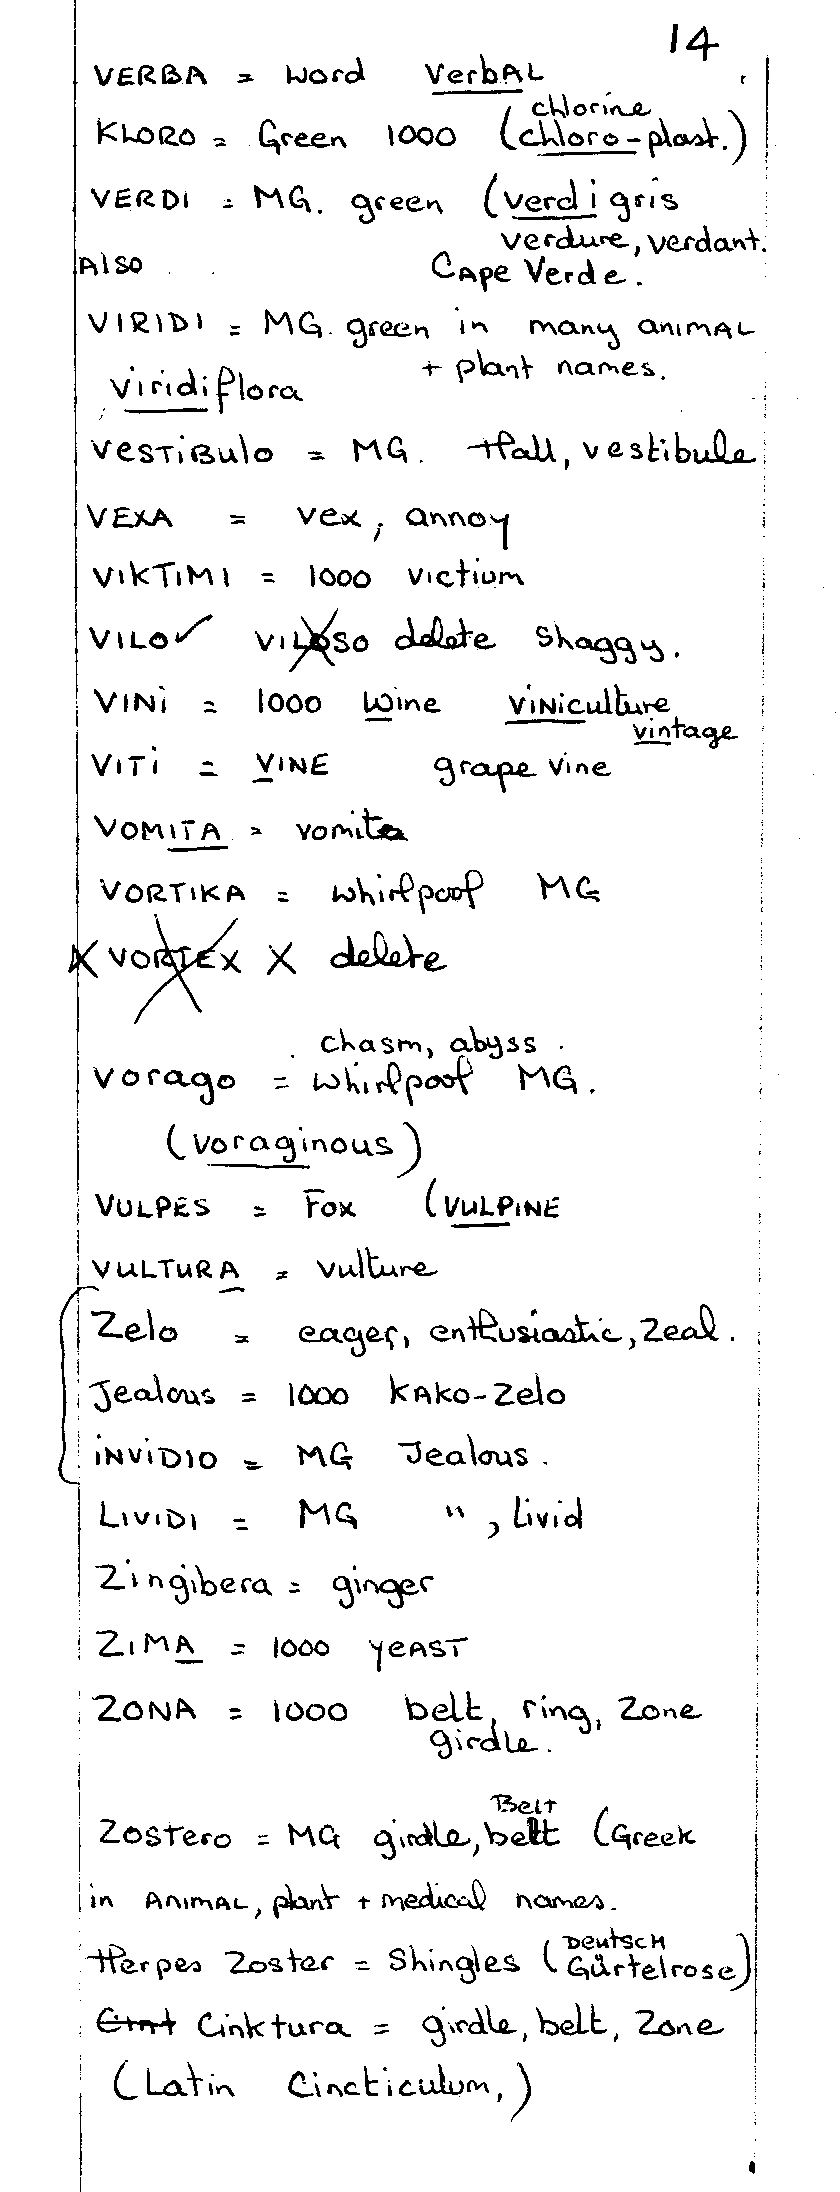 14
VERBA = word VerbAL
chlorine
KLORO = Green 1000 (chloro-plast.)
VERDI = MG. green (verdigris
verdure, verdant.
Also Cape Verde.
VIRIDI = MG. green in many ANIMAL
+ plant names.
viridiflora
VESTIBulo = MG. Hall, vestibule
VEXA = vex, annoy
VIKTIMI = 1000 victium
VILO✓ VILOSO delete shaggy.
VINI = 1000 wine VINIculture
vintage
VITI = VINE grape vine
VOMITA = vomit
VORTIKA = whirlpool MG
X VORTEX X delete
chasm, abyss.
Vorago = whirlpool MG.
(voraginous)
VULPES = Fox (VULPINE
VULTURA = vulture
Zelo = eager, enthusiastic, zeal.
Jealous = 1000 KAKO-Zelo
INVIDIO = MG Jealous.
LIVIDI = MG " , livid
Zingibera = ginger
ZIMA = 1000 YEAST
ZONA = 1000 belt, ring, zone
girdle.
Belt
ZOSTERO = MG girdle, belt (Greek
in ANIMAL, plant + medical names.
Deutsch
Herpes Zoster = Shingles (Gürtelrose)
Cinktura = girdle, belt, zone
(Latin Cincticulum,)